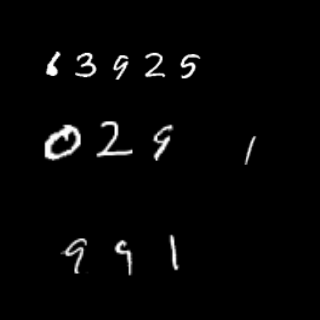 63925
029 1
991